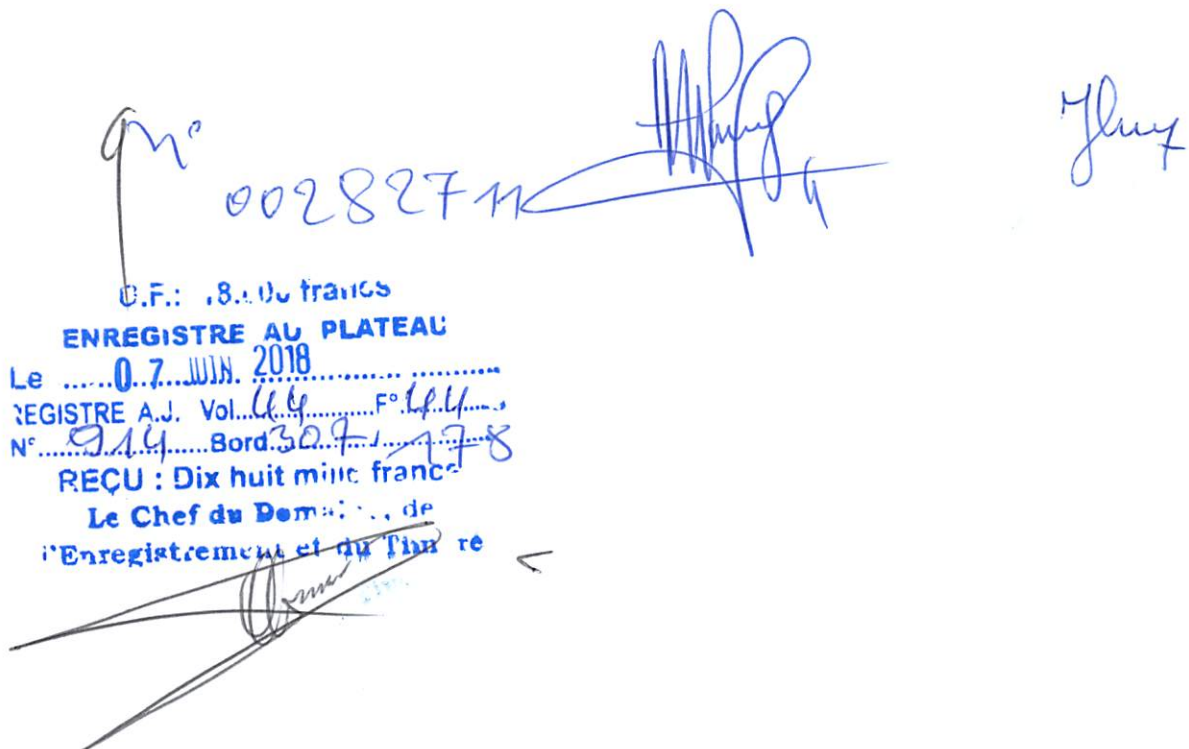 n° 00282711
D.F.: 18.000 francs
ENREGISTRE AU PLATEAU
Le ......07 JUIN. 2018....................
REGISTRE A.J. Vol...44..........F°.44.....
N°......914......Bord.307./.178
REÇU : Dix huit mille francs
Le Chef du Domaine, de
l'Enregistrement et du Timbre